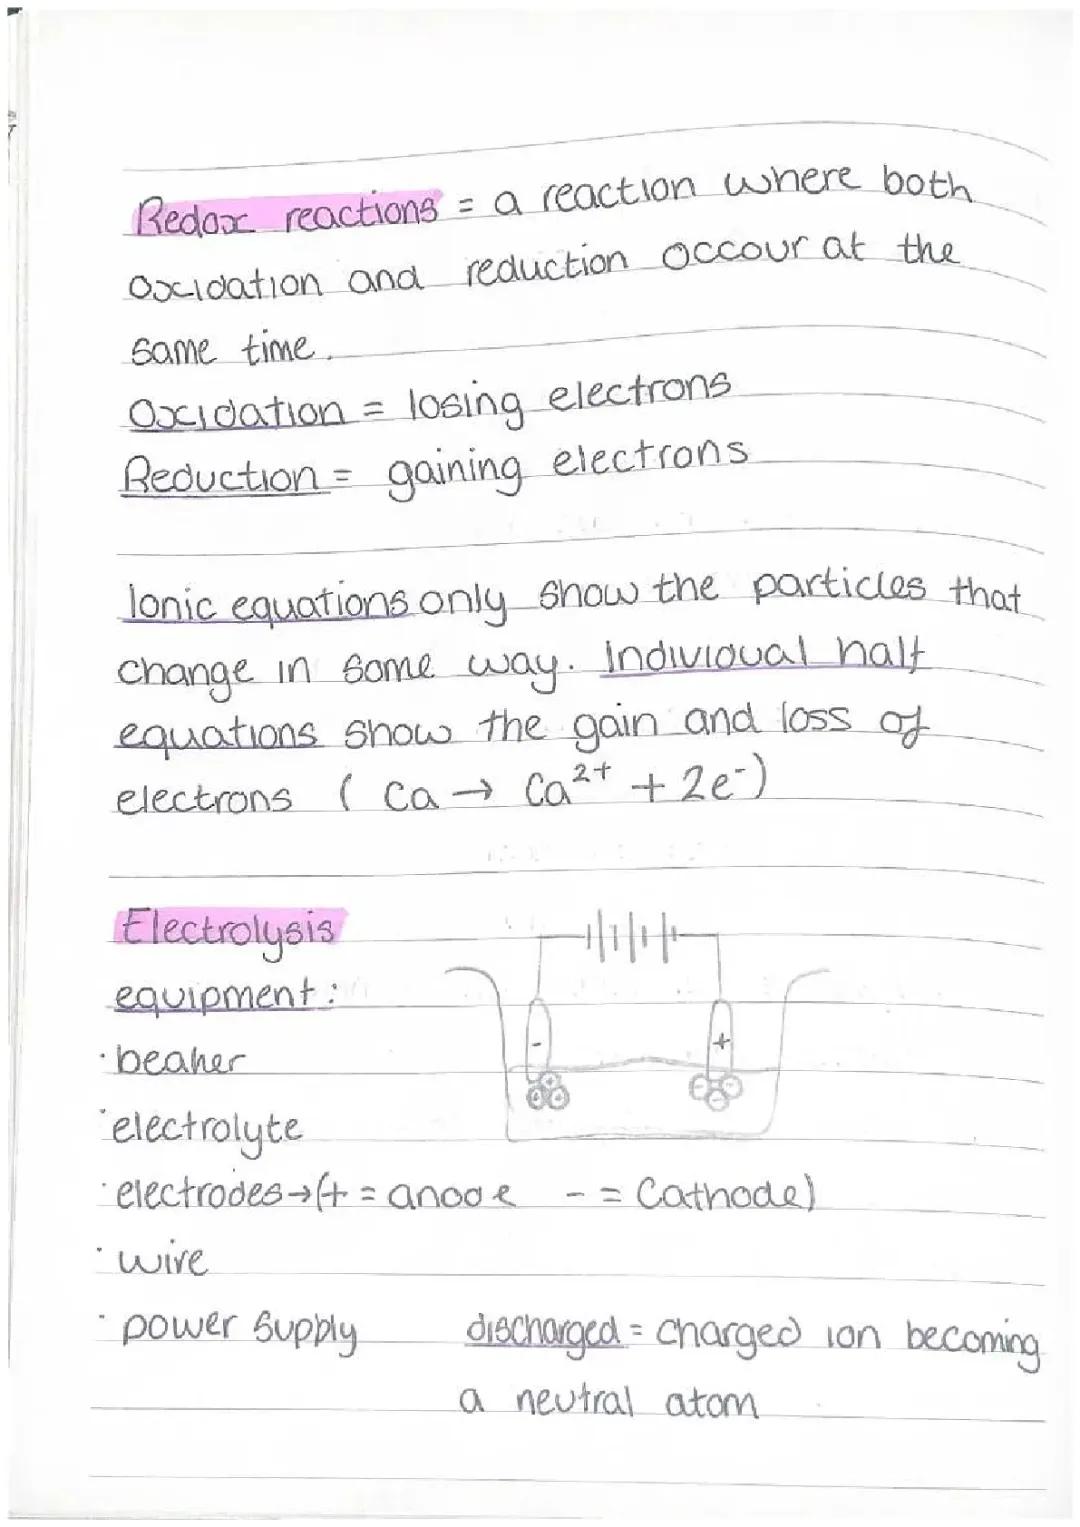 Redox reactions = a reaction where both
oxidation and reduction occour at the
same time.
Oxidation = losing electrons
Reduction = gaining electrons
Ionic equations only show the particles that
change in some way. Individual half
equations show the gain and loss of
electrons ( Ca → Ca²⁺ + 2e⁻)
Electrolysis
equipment:
· beaker
· electrolyte
· electrodes → (+ = anode - = Cathode)
· wire
· power supply
discharged = charged ion becoming
a neutral atom
- +
+ + + +
- - - -